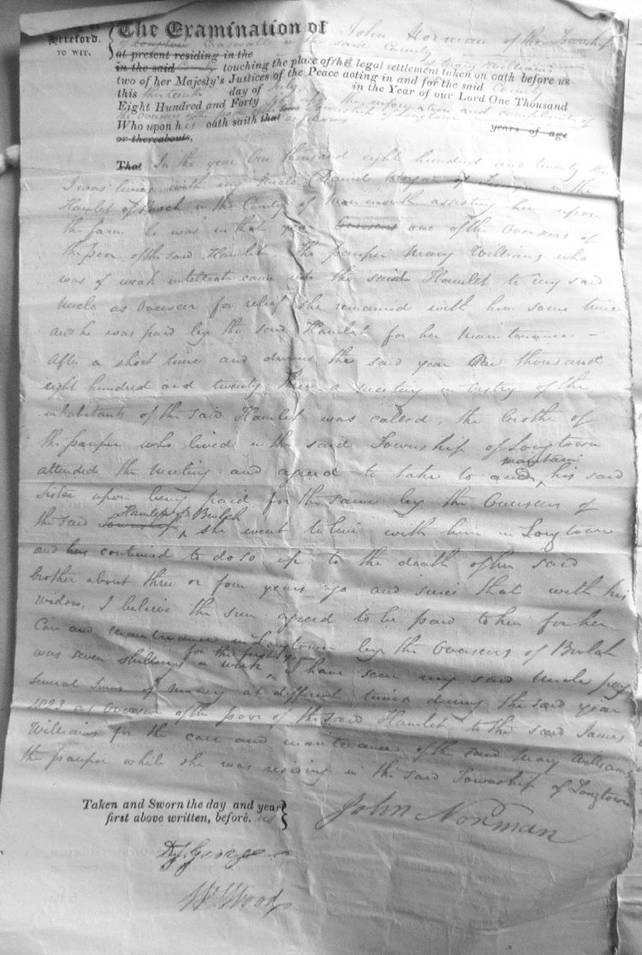 Hereford. The Examination of John Norman of the Township
TO WIT. of Longtown in the said County
at present residing in the
in the said county touching the place of the legal settlement of Mary Williams taken on oath before us
two of her Majesty's Justices of the Peace acting in and for the said County
this thirteenth day of July in the Year of our Lord One Thousand
Eight Hundred and Forty
Who upon his oath saith that as follows years of age
or thereabouts,
That In the year One thousand eight hundred and twenty three
I was living with my Uncle in the
Hamlet of in the County of Monmouth assisting him upon
the farm he was in that year one of the Overseers of
the poor of the said Hamlet the pauper Mary Williams who
was of weak intellects came into the said Hamlet to my said
Uncle as Overseer for relief she remained with him some time
and he was paid by the said Hamlet for her maintenance –
After a short time and during the said year One thousand
eight hundred and twenty three a meeting in vestry of the
inhabitants of the said Hamlet was called, the brother of
the pauper who lived in the said Township of Longtown
attended the meeting and agreed to take to and maintain his said
Sister upon being paid for the same by the Overseers of
the said Township Hamlet of Bwlch, she went to live with him in Longtown
and has continued to do so up to the death of her said
brother about three or four years ago and since that with his
widow, I believe the sum agreed to be paid to him for her
Care and maintenance in Longtown by the Overseers of Bwlch
was seven shillings a week for the first year I have seen my said Uncle pay
several sums of money at different times during the said year
1823 as Overseer of the poor of the said Hamlet to the said James
Williams for the care and maintenance of the said Mary Williams
the pauper while she was residing in the said Township of Longtown
Taken and Sworn the day and year
first above written, before us
John Norman
George
Wood